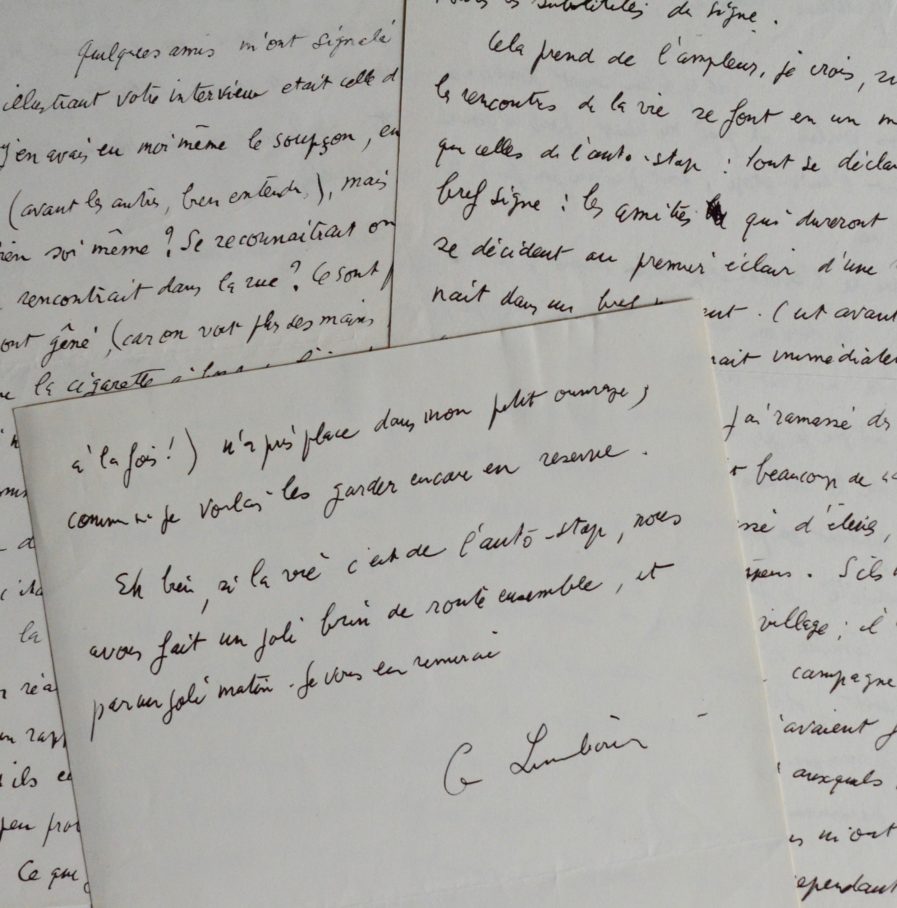 Quelques amis m'ont signalé
illustrant votre interview etait celle d
J'en avais eu moi même le soupçon, en
(avant les autres, bien entendu,), mais
ien soi même? Se reconnaitrait on
rencontrait dans la rue? Ce sont
ont gêné, (car on voit plus des mains
la cigarette
la
Ce que
substituts de signe.
Cela prend de l'ampleur, je crois, si
les rencontres de la vie se font en un m
que celles de l'auto-stop : tout se déclar
bref signe : les amitiés qui dureront
se décident au premier éclair d'une
nait dans un bref
. C'est avant
nait immédiate
J'ai ramassé des
beaucoup de
ssé d'élus,
. S'ils
village ; il
campagne
avaient
auxquels
m'ont
ependant
à la fois!) n'a pris place dans mon petit ouvrage ;
comme si je voulais les garder encore en reserve.
Eh bien, si la vie c'est de l'auto-stop, nous
avons fait un joli brin de route ensemble, et
par un joli matin. Je vous en remercie